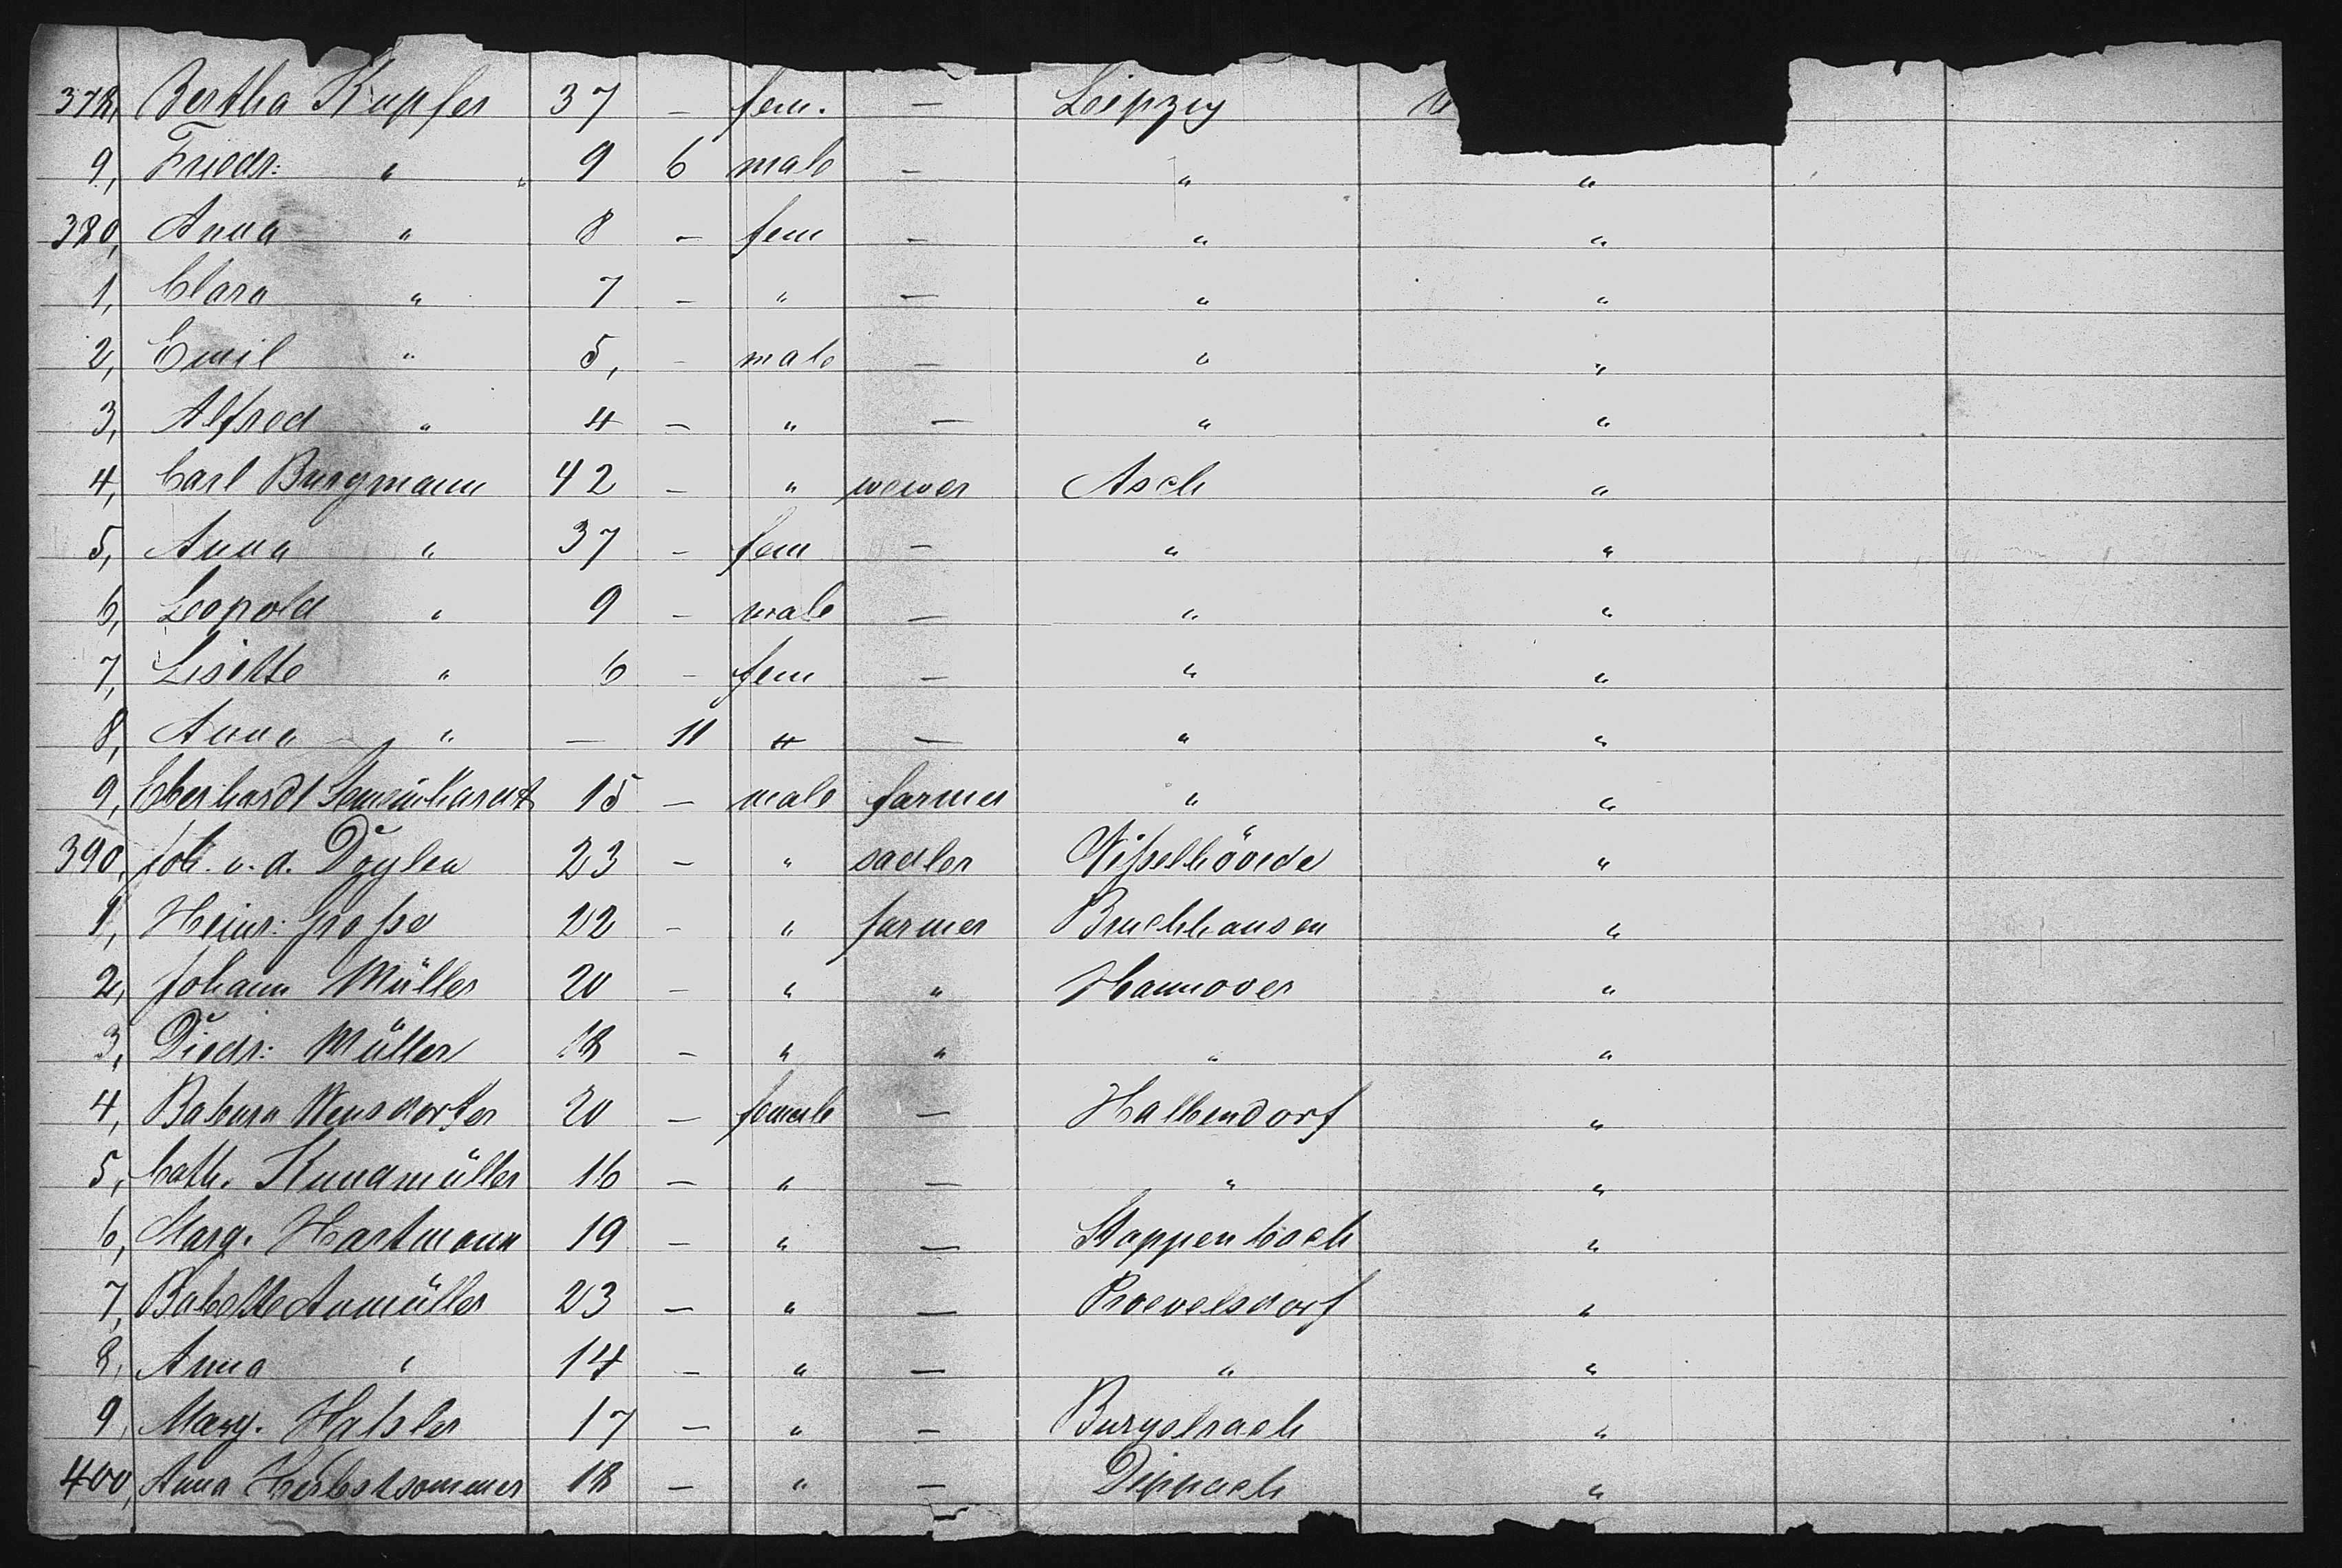 378, Bertha Kupfer 37 - fem. - Leipzig
9, Friedr: " 9 6 male - " "
380, Anna " 8 - fem - " "
1, Clara " 7 - " - " "
2, Emil " 5, - male - " "
3, Alfred " 4 - " - " "
4, Carl Burgmann 42 - " wewer Asch "
5, Anna " 37 - fem - " "
6, Leopold " 9 - male - " "
7, Lisette " 6 - fem - " "
8, Anna " - 11 " - " "
9, Eberhardt 15 - male farmer " "
390, Joh. v. d. 23 - " sadler Vißelhövede "
1, Heinr: Große 22 - " farmer Bruchhausen "
2, Johann Müller 20 - " " Hannover "
3, Diedr: Müller 18 - " " " "
4, Babara 20 - female - Halbendorf "
5, Cath. Kundmüller 16 - " - " "
6, Marg. Hartmann 19 - " - Stappenbach "
7, Babette Aumüller 23 - " - "
8, Anna " 14 - " - " "
9, Marg. 17 - " - "
400, Anna Herbstsommer 18 - " - Dippach "